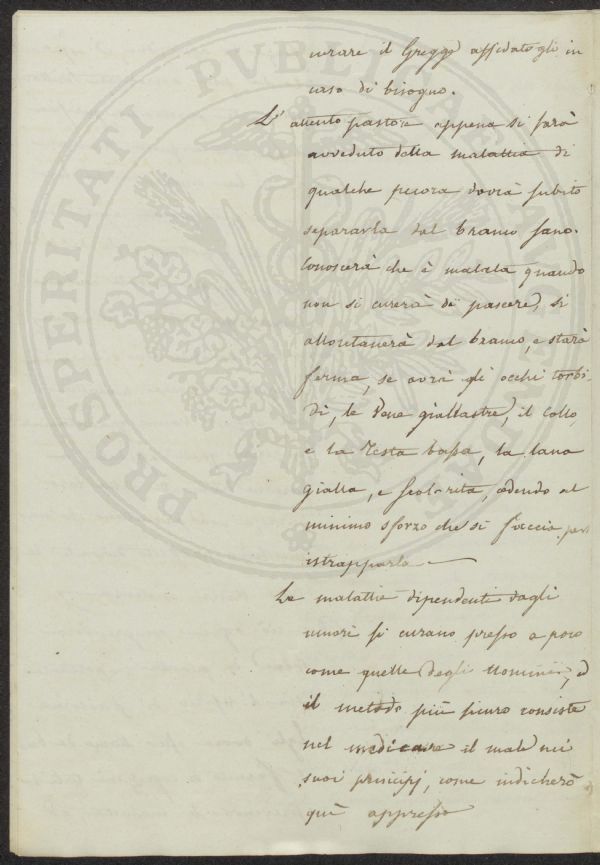 curare il Gregge affidatogli in
caso di bisogno.
L'attento pastore appena si sarà
avveduto della malattia di
qualche pecora dovrà subito
separarla dal branco sano.
Conoscerà che è malata quando
non si curerà di pascere, si
allontanerà dal branco, e starà
ferma, se avrà gli occhi torbi-
di, le Vene giallastre, il collo,
e la Testa bassa, la lana
gialla, e scolorita, cedendo al
minimo sforzo che si faccia per
istrapparla
Le malattie dipendenti dagli
umori si curano presso a poco
come quelle degli Uomini, ed
il metodo più sicuro consiste
nel medicare il male nei
suoi principj, come indicherò
quì appresso
PROSPERITATI PVBLICAE